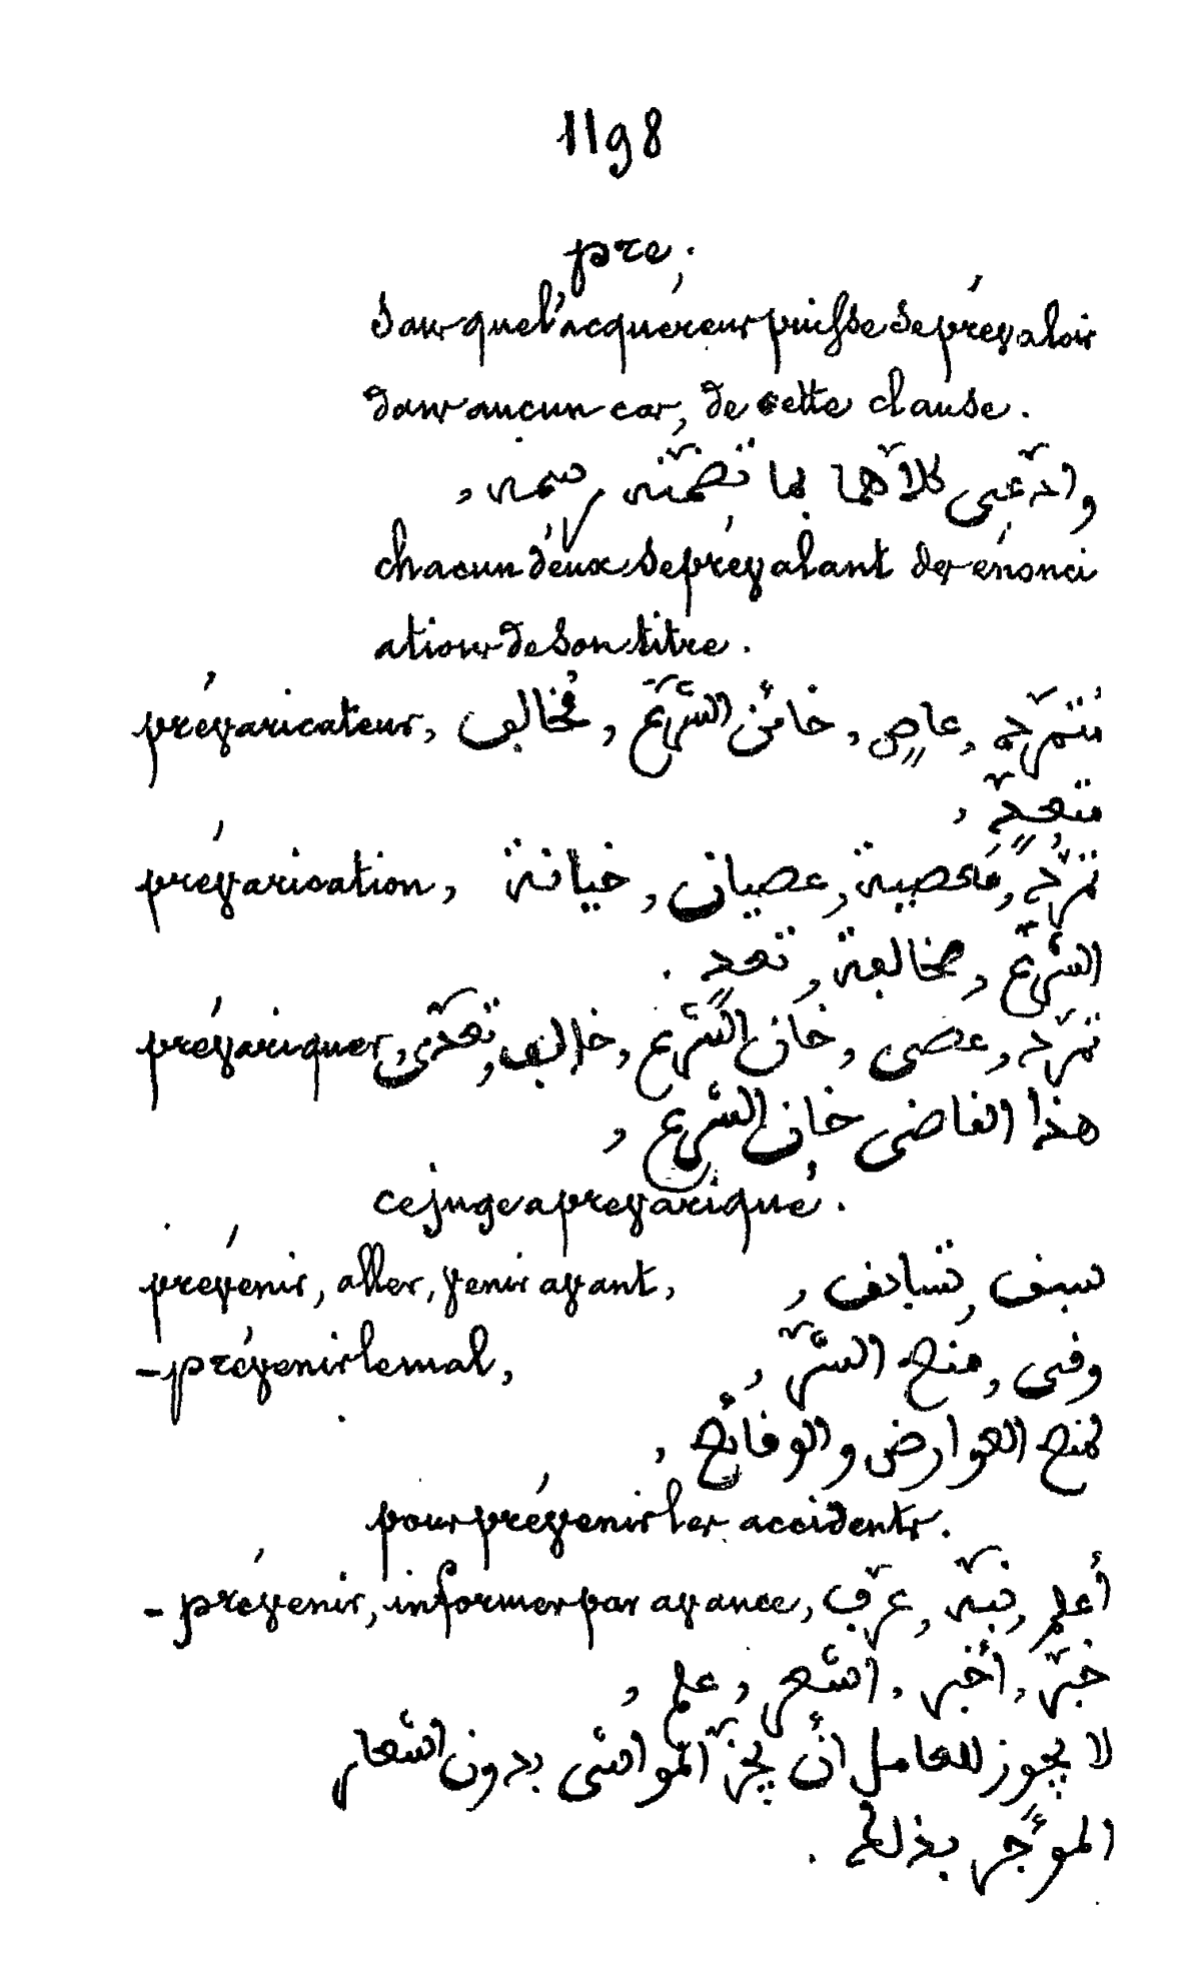 1198
pre.
sans que l'acquéreur puisse se prévaloir
dans aucun cas, de cette clause.
وادّعى كلاّهما بما تضمّنه رسمه,
chacun d'eux se prévalant des énonci
ations de son titre.
prévaricateur, مُتمرّد, عاصٍ, خائن الشّرع, مُخالف
متعدٍّ,
prévarication, تمرّدٌ, مَعصية, عصيان, خيانة
الشّرع, مخالفة, تعدٍ.
prévariquer, تمرّد, عصى, خان الشّرع, خالف, تعدّى
هذا القاضى خان الشرع,
ce juge a prévariqué.
prévenir, aller, venir avant, سبق, تسابق,
- prévenir le mal, وقى, منع الشّرّ,
لمنع العوارض والوقائع,
pour prévenir les accidents.
- prévenir, informer par avance, أعلم, نبّه, عرّف
خبّر, أخبر, اشعر, علم,
لا يجوز للعامل أن يجزّ المواشى بدون اشعار
المؤجّر بذلك.